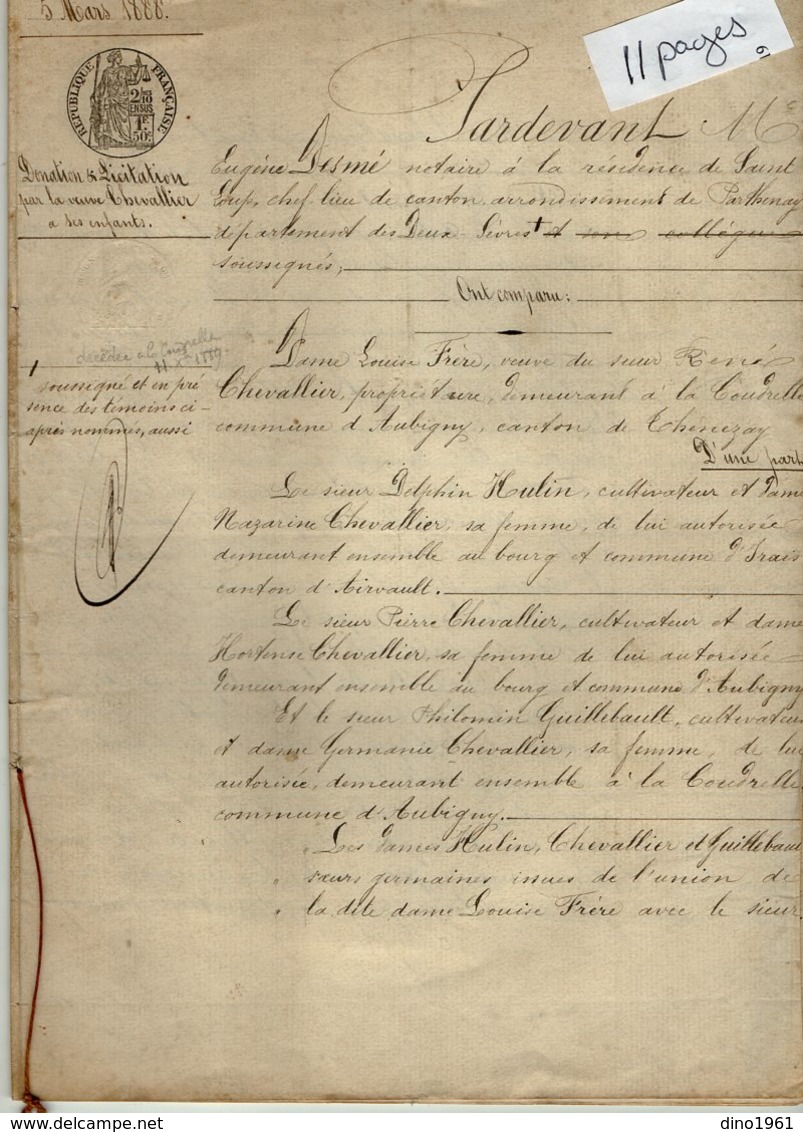 5 Mars 1888.
11 pages
RÉPUBLIQUE FRANÇAISE
2/10 EN SUS
1F. 50c.
Donation & Licitation
par la veuve Chevallier
à ses enfants.
Pardevant Me
Eugène Desmé notaire à la résidence de Saint
Loup, chef lieu de canton arrondissement de Parthenay
département des Deux-Sèvres + et son collègue
soussignés,
Ont comparu:
décédée à la Coudrelle
11 Xbre 1889.
+
soussigné et en pré
sence des témoins ci-
après nommés, aussi
Dame Louise Frère, veuve du sieur René
Chevallier, propriétaire, demeurant à la Coudrelle
commune d'Aubigny, canton de Thénezay
D'une part
Le sieur Delphin Hulin, cultivateur et dame
Nazarine Chevallier, sa femme, de lui autorisée
demeurant ensemble au bourg et commune d'Irais
canton d'Airvault.
Le sieur Pierre Chevallier, cultivateur et dame
Hortense Chevallier, sa femme de lui autorisée
demeurant ensemble au bourg et commune d'Aubigny
Et le sieur Philomin Guillebault, cultivateur
et dame Germanie Chevallier, sa femme, de lui
autorisée, demeurant ensemble à la Coudrelle
commune d'Aubigny.
" Les dames Hulin, Chevallier et Guillebau
" sœurs germaines issues de l'union de
" la dite dame Louise Frère avec le sieur
dino1961